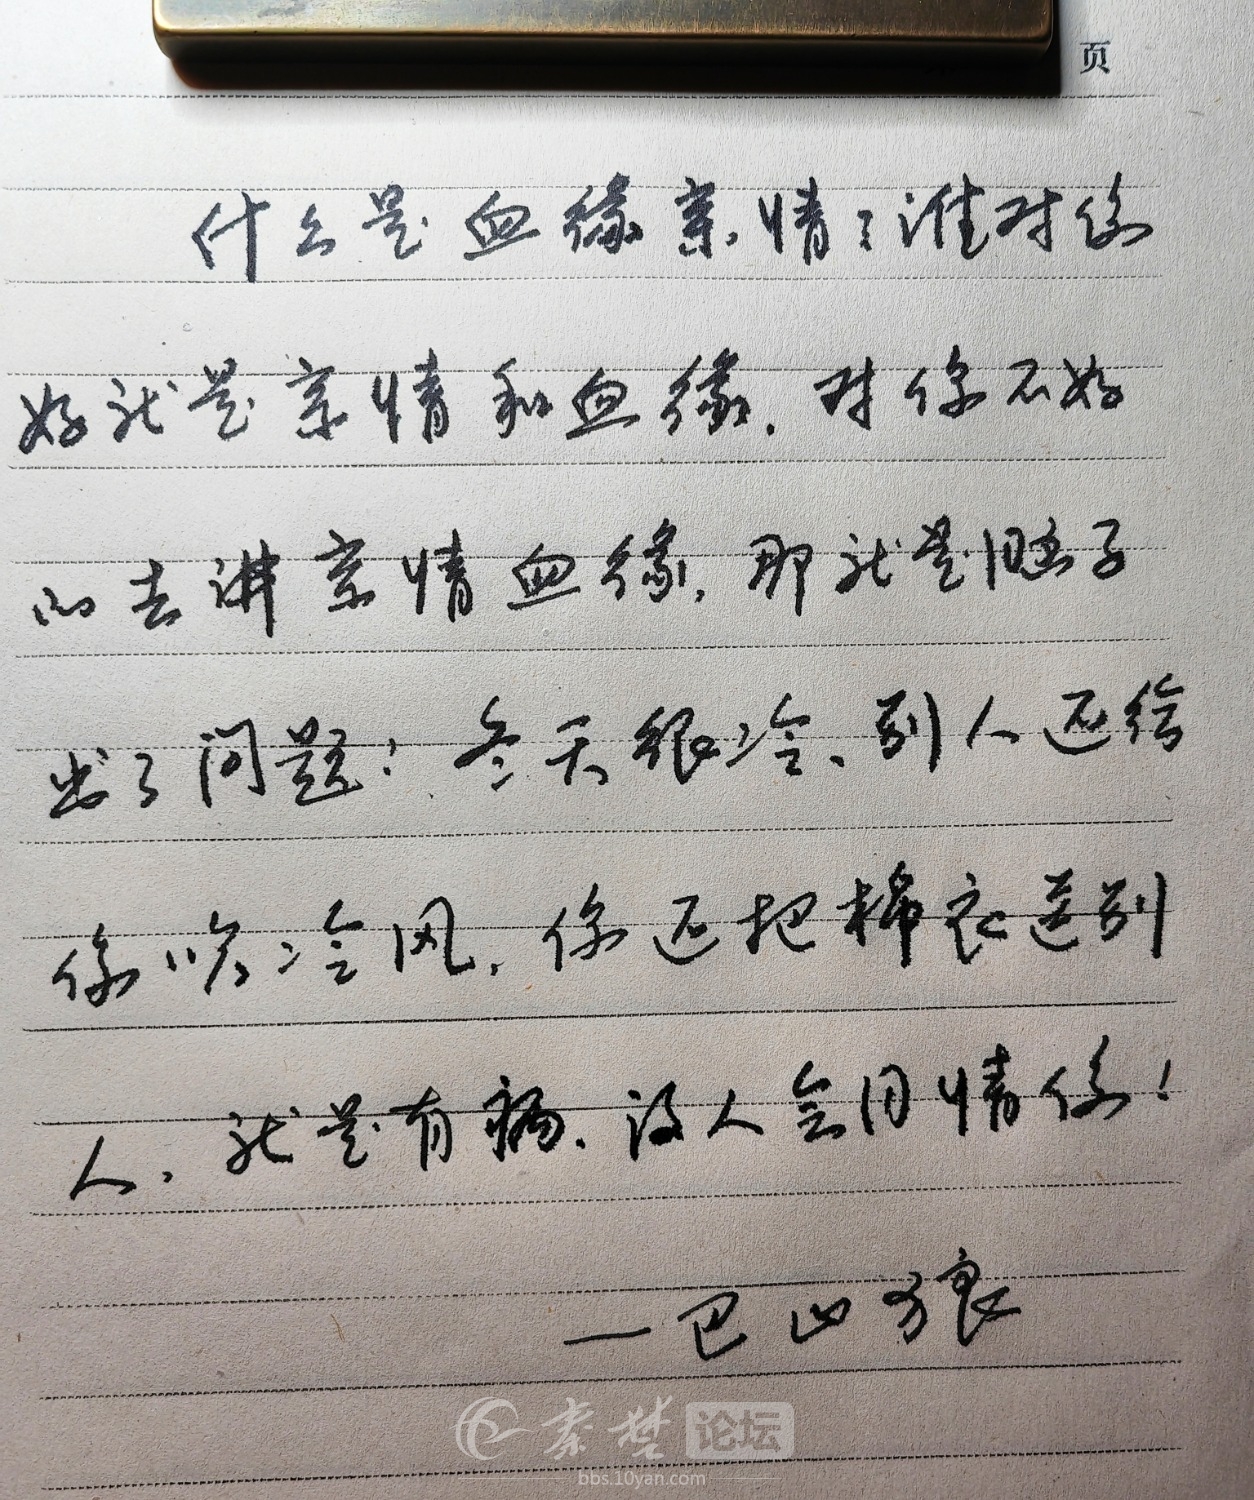 页
什么是血缘亲情？谁对你
好就是亲情和血缘，对你不好
而去讲亲情血缘，那就是脑子
出了问题！冬天很冷，别人还给
你吹冷风，你还把棉衣送别
人，就是有病，没人会同情你！
—巴山狼
秦楚论坛
bbs.10yan.com